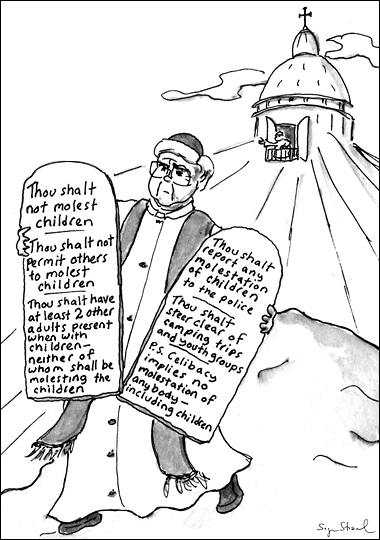 Thou shalt
not molest
children
Thou shalt not
permit others
to molest
children
Thou shalt have
at least 2 other
adults present
when with
children–
neither of
whom shall be
molesting the
children
Thou shalt
report any
molestation
of children
to the police
Thou shalt
steer clear of
camping trips
and youth groups
P.S. Celibacy
implies no
molestation of
anybody–
including children